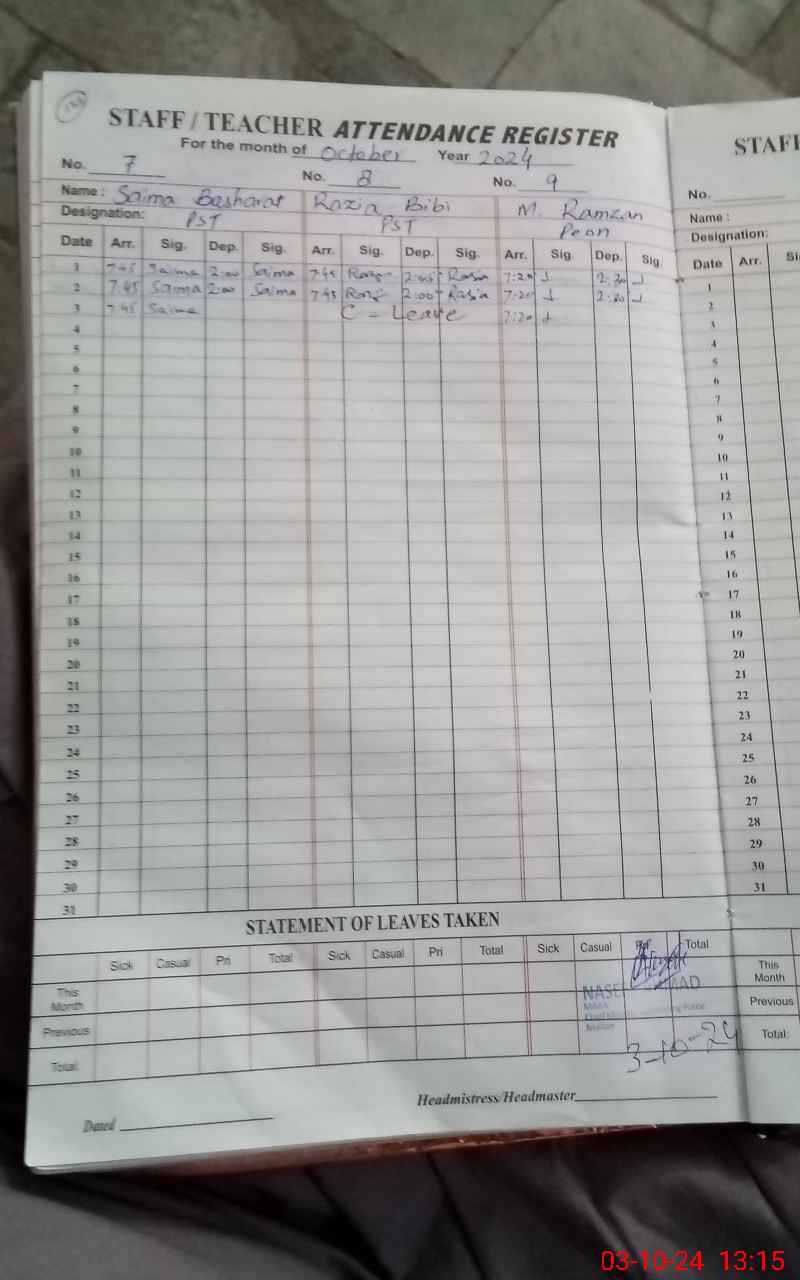 STAFF / TEACHER ATTENDANCE REGISTER
For the month of October Year 2024
No. 7 No. 8 No. 9
Name : Saima Basharat Razia Bibi M. Ramzan
Designation: PST PST Peon
Date Arr. Sig. Dep. Sig. Arr. Sig. Dep. Sig. Arr. Sig. Dep. Sig.
1 7:45 Saima 2:00 Saima 7:45 2:00 Rasia 7:20 2:30
2 7:45 Saima 2:00 Saima 7:45 2:00 Rasia 7:20 2:30
3 7:45 Saima C = Leave 7:20
4
5
6
7
8
9
10
11
12
13
14
15
16
17
18
19
20
21
22
23
24
25
26
27
28
29
30
31
STATEMENT OF LEAVES TAKEN
Sick Casual Pri Total Sick Casual Pri Total Sick Casual Total
This Month
Previous
Total
MEA
3-10-24
Headmistress/Headmaster
Dated
STAFF
No.
Name :
Designation:
Date Arr.
1
2
3
4
5
6
7
8
9
10
11
12
13
14
15
16
17
18
19
20
21
22
23
24
25
26
27
28
29
30
31
This Month
Previous
Total:
03-10-24 13:15